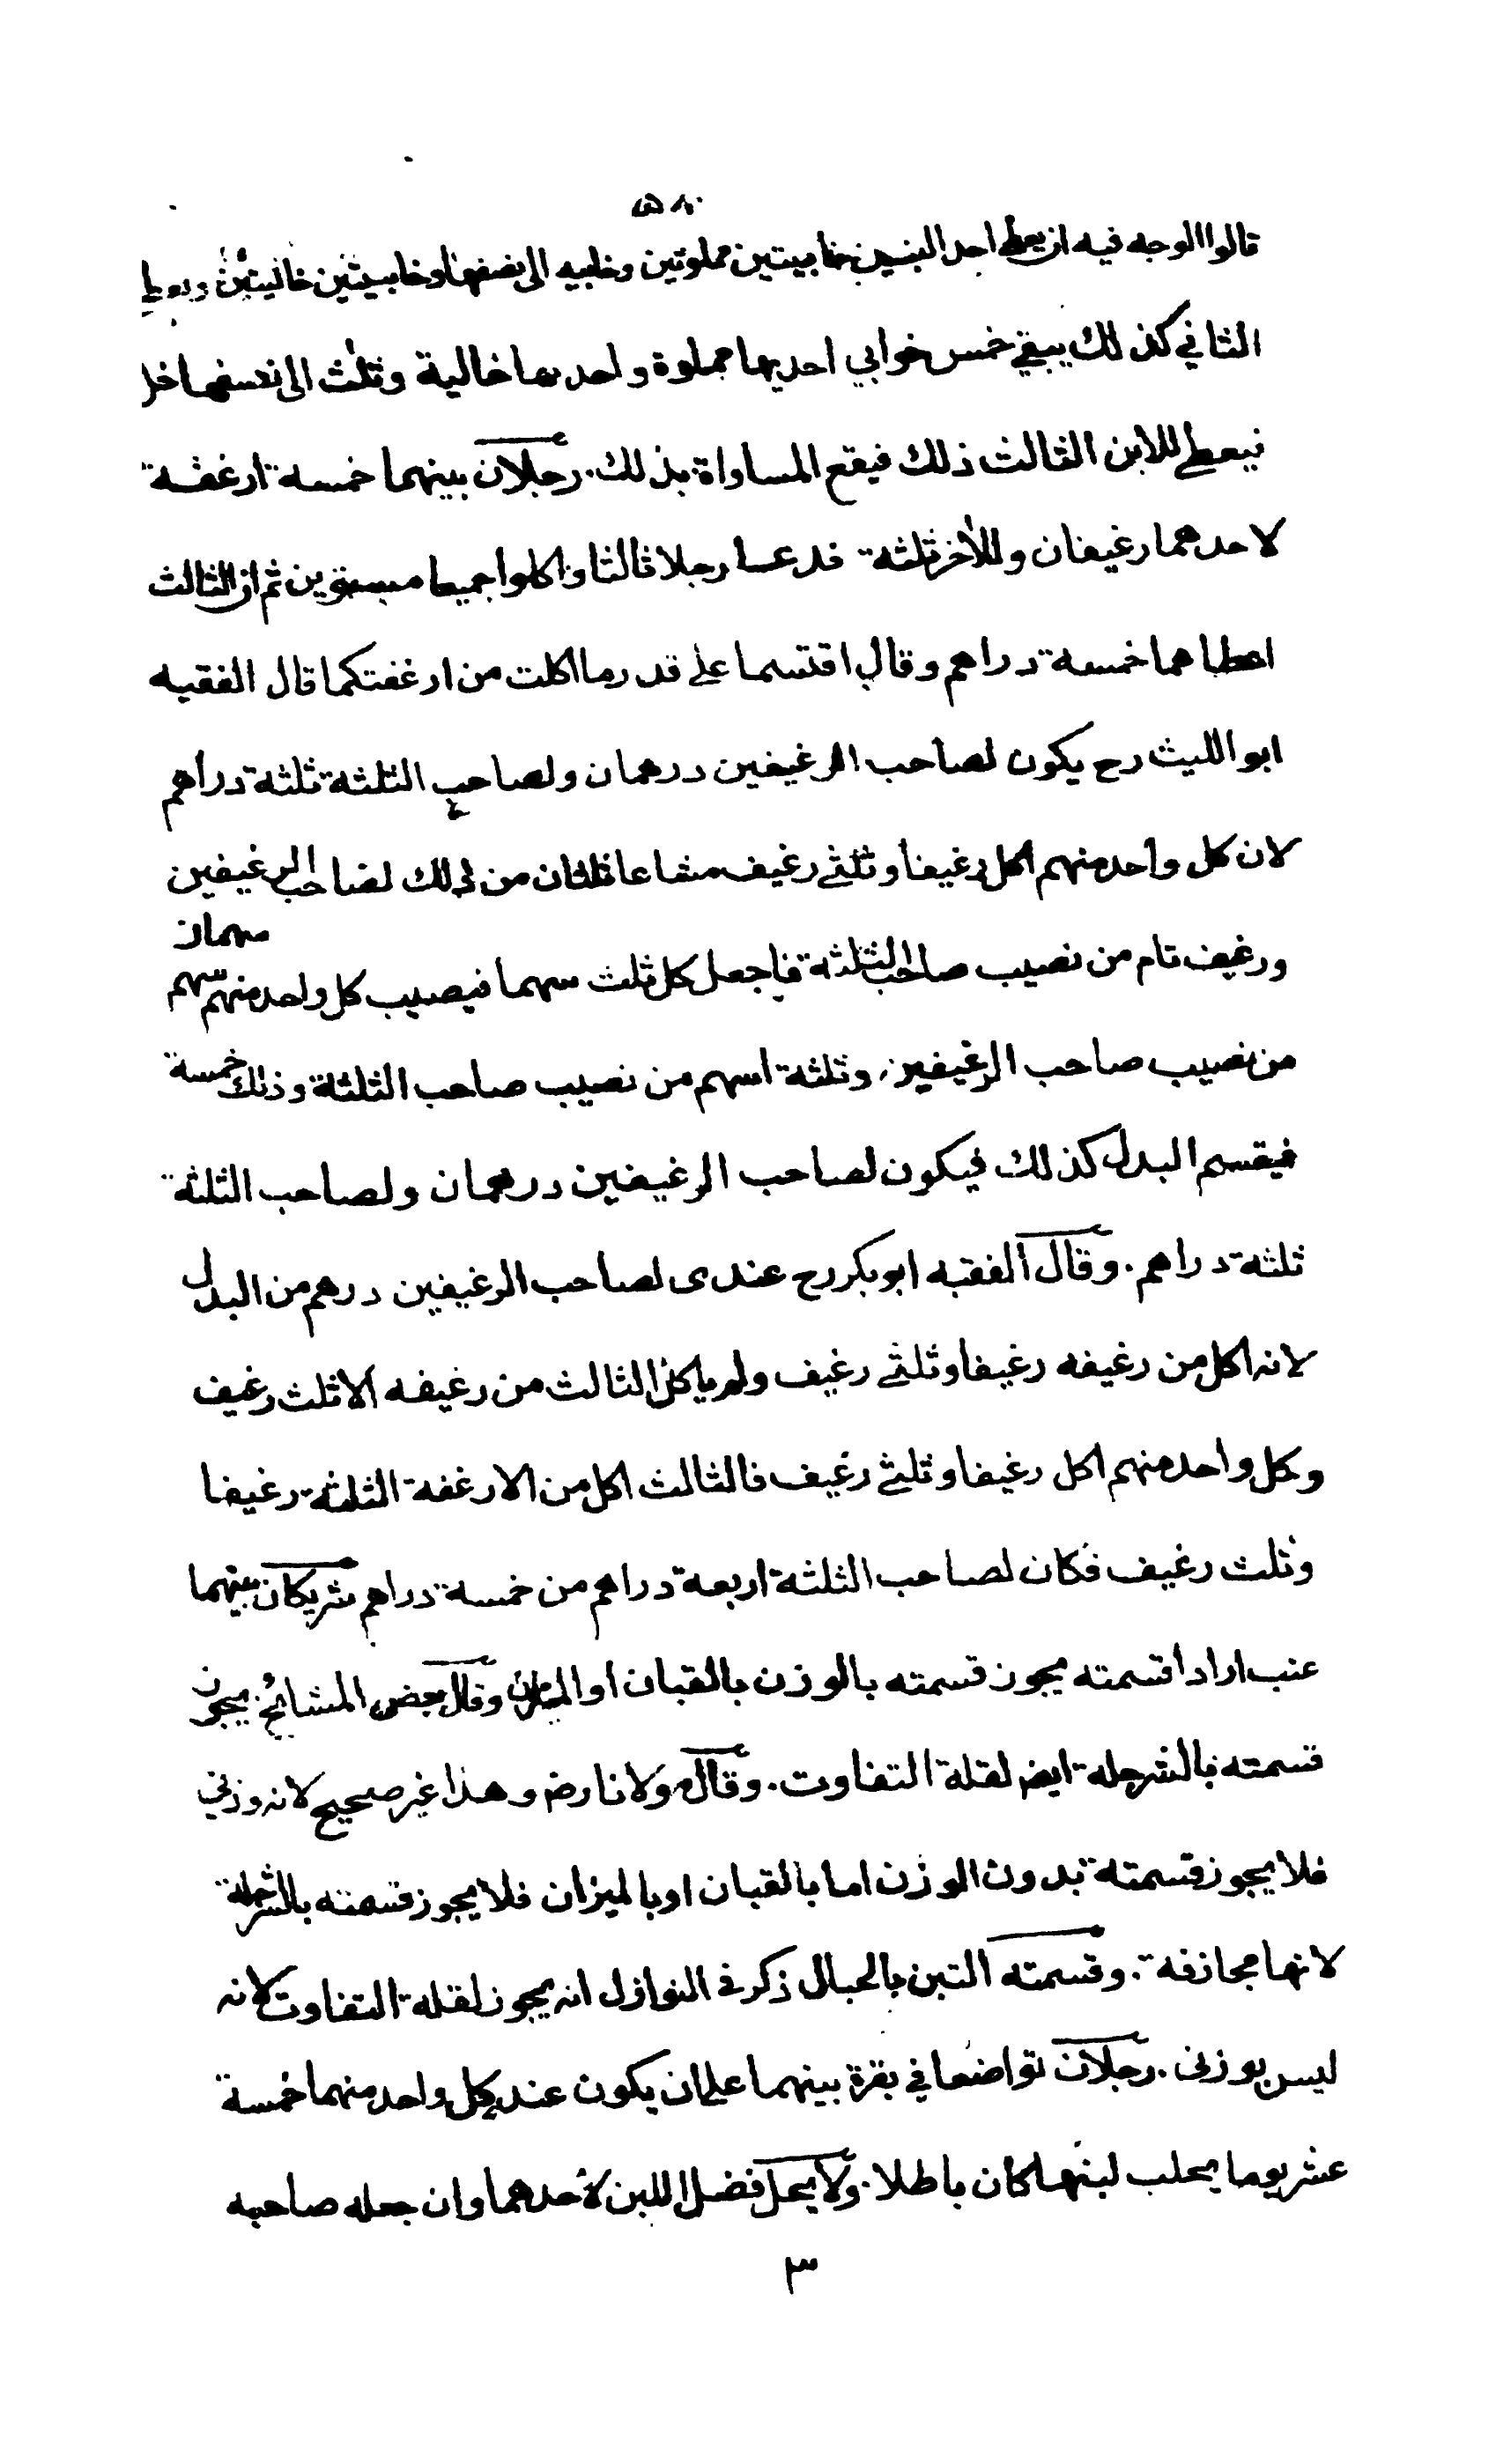 ٥٨٠
قالوا الوجه فيه ان يعطى احد البنين خابيتين مملوتين وخابيه الى نصفها وخابيتين خاليتين ويعطى
الثاني كذلك يبقي خمس خوابي احديها مملوة واحديها خالية وثلث الى نصفها خل
فيعطى للابن الثالث ذلك فيقع المساواة بذلك. رجلان بينهما خمسة ارغفة
لاحدهما رغيفان وللأخر ثلثة فدعيا رجلا ثالثا واكلوا جميعا مستوين ثم ان الثالث
اعطاهما خمسة دراهم وقال اقتسما على قدر ما اكلت من ارغفتكما قال الفقيه
ابو الليث رح يكون لصاحب الرغيفين درهمان ولصاحب الثلثة ثلثة دراهم
لان كل واحد منهم اكل رغيفا وثلثي رغيف مشاعا ثلثان من ذلك لصاحب الرغيفين
ورغيف تام من نصيب صاحب الثلثة فاجعل كل ثلث سهما فيصيب كل واحد منهم سهم سهمان
من نصيب صاحب الرغيفين وثلثة اسهم من نصيب صاحب الثلثة وذلك خمسة
فيقسم البدل كذلك فيكون لصاحب الرغيفين درهمان ولصاحب الثلثة
ثلثة دراهم. وقال الفقيه ابو بكر رح عندى لصاحب الرغيفين درهم من البدل
لانه اكل من رغيفه رغيفا وثلثي رغيف ولم ياكل الثالث من رغيفه الا ثلث رغيف
وكل واحد منهم اكل رغيفا وثلثي رغيف فالثالث اكل من الارغفة الثلثة رغيفا
وثلث رغيف فكان لصاحب الثلثة اربعة دراهم من خمسة دراهم شريكان بينهما
عنب ارادا قسمته يجوز قسمته بالوزن بالقبان او الميزان وقال بعض المشائخ يجوز
قسمته بالشرجلة ايضا لقلة التفاوت. وقال مولانا رض وهذا غير صحيح لانه وزني
فلا يجوز قسمته بدون الوزن اما بالقبان او بالميزان فلا يجوز قسمته بالشرجلة
لانها مجازفة. وقسمته التبن بالحبال ذكر في النوازل انه يجوز لقلة التفاوت لانه
ليس بوزنى. رجلان تواضعا في بقرة بينهما على ان يكون عند كل واحد منهما خمسة
عشر يوما يحلب لبنها كان باطلا. ولا يحل فضل اللبن لأحدهما وان جعله صاحبه
٣